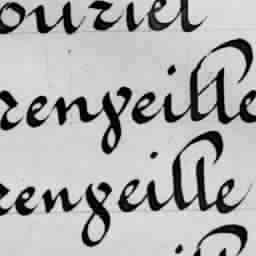 ouriel
rengeille
rengeille